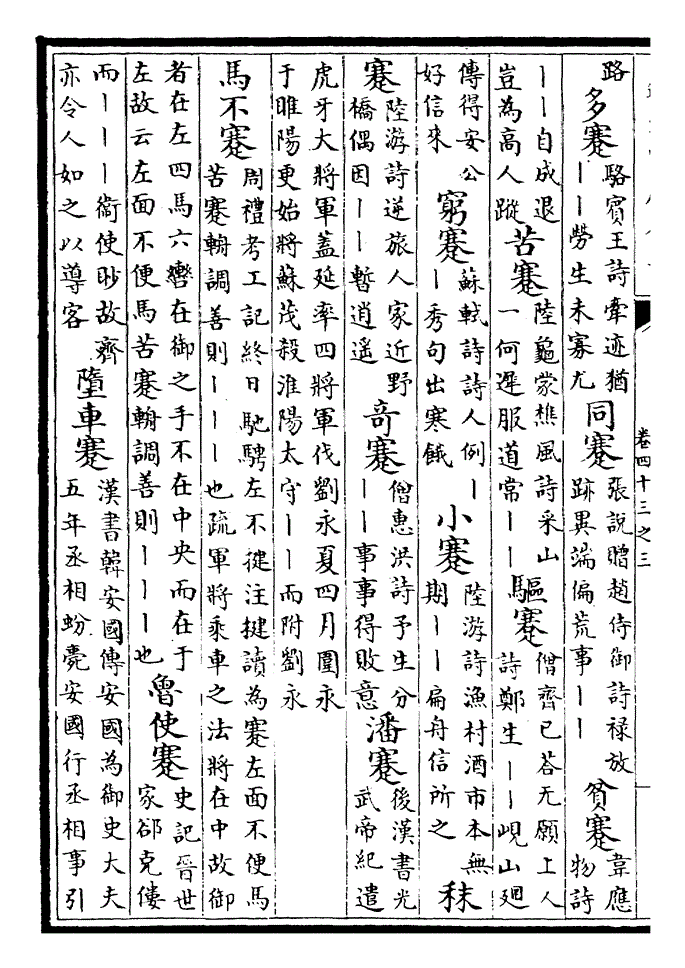 卷四十三之三
路多蹇駱賓王詩牽迹猶丨丨勞生未寡尤同蹇張說贈趙侍御詩祿放跡異端偏荒事丨丨貧蹇韋應物詩
丨丨自成退豈為高人蹤苦蹇陸龜蒙樵風詩采山一何遲服道常丨丨驅蹇僧齊已荅无願上人詩鄭生丨丨峴山廻
傳得安公好信來窮蹇蘇軾詩詩人例丨丨秀句出寒餓小蹇陸游詩漁村酒市本無期丨丨扁舟信所之秣
蹇陸游詩逆旅人家近野橋偶因丨丨暫逍遥奇蹇僧惠洪詩予生分丨丨事事得敗意潘蹇後漢書光武帝紀遣
虎牙大將軍蓋延率四將軍伐劉永夏四月圍永于睢陽更始將蘇茂殺淮陽太守丨丨而附劉永
馬不蹇周禮考工記終日馳騁左不楗注楗讀為蹇左面不便馬苦蹇輈調善則丨丨丨也疏軍將乘車之法將在中故御
者在左四馬六轡在御之手不在中央而在于左故云左面不便馬苦蹇輈調善則丨丨丨也魯使蹇史記晉世家郤克僂
而丨丨丨衛使眇故齊亦令人如之以導客墮車蹇漢書韓安國傳安國為御史大夫五年丞相蚡薨安國行丞相事引